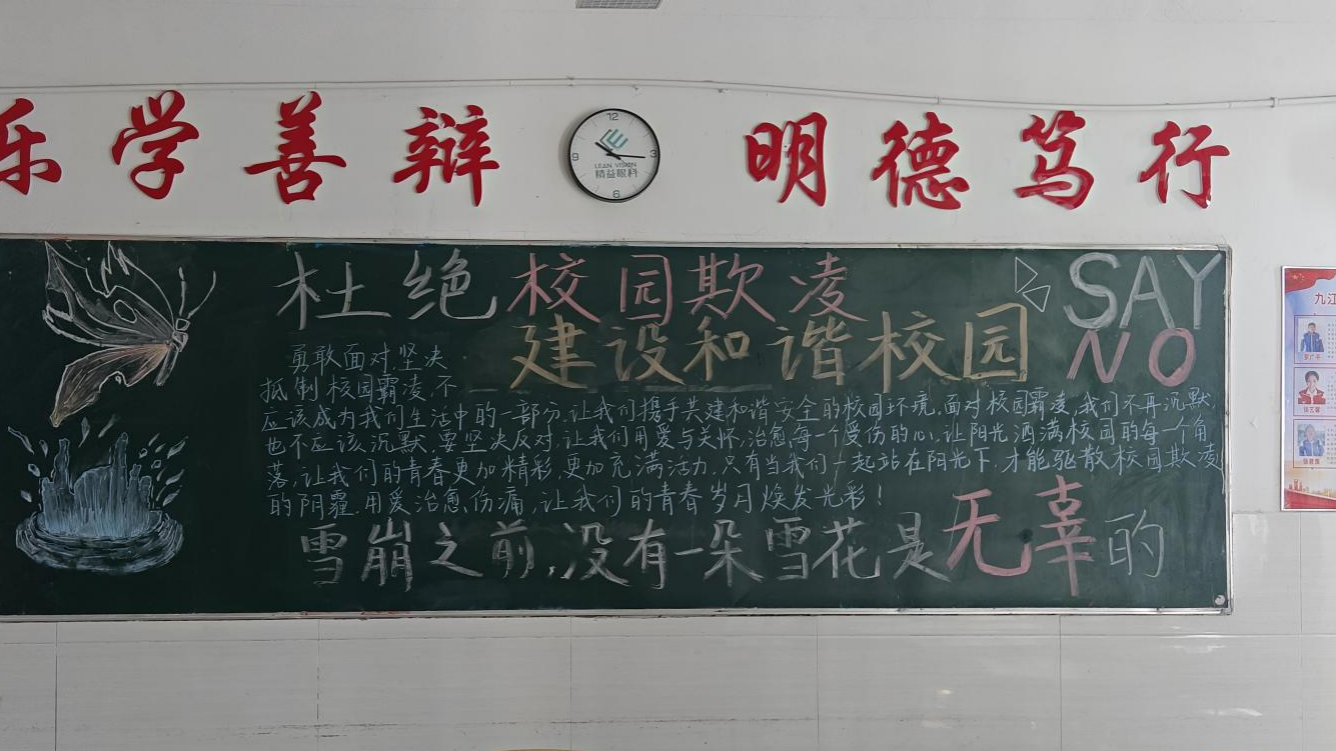 乐学善辩 明德笃行
12
9 3
6
LEAN VISION
精益眼科
杜绝校园欺凌
建设和谐校园
SAY
NO
勇敢面对.坚决
抵制校园霸凌,不
应该成为我们生活中的一部分.让我们携手共建和谐安全的校园环境.面对校园霸凌,我们不再沉默.
也不应该沉默.要坚决反对.让我们用爱与关怀.治愈每一个受伤的心.让阳光洒满校园的每一个角
落,让我们的青春更加精彩.更加充满活力.只有当我们一起站在阳光下.才能驱散校园欺凌
的阴霾.用爱治愈伤痛.让我们的青春岁月焕发光彩!
雪崩之前,没有一朵雪花是无辜的
九江